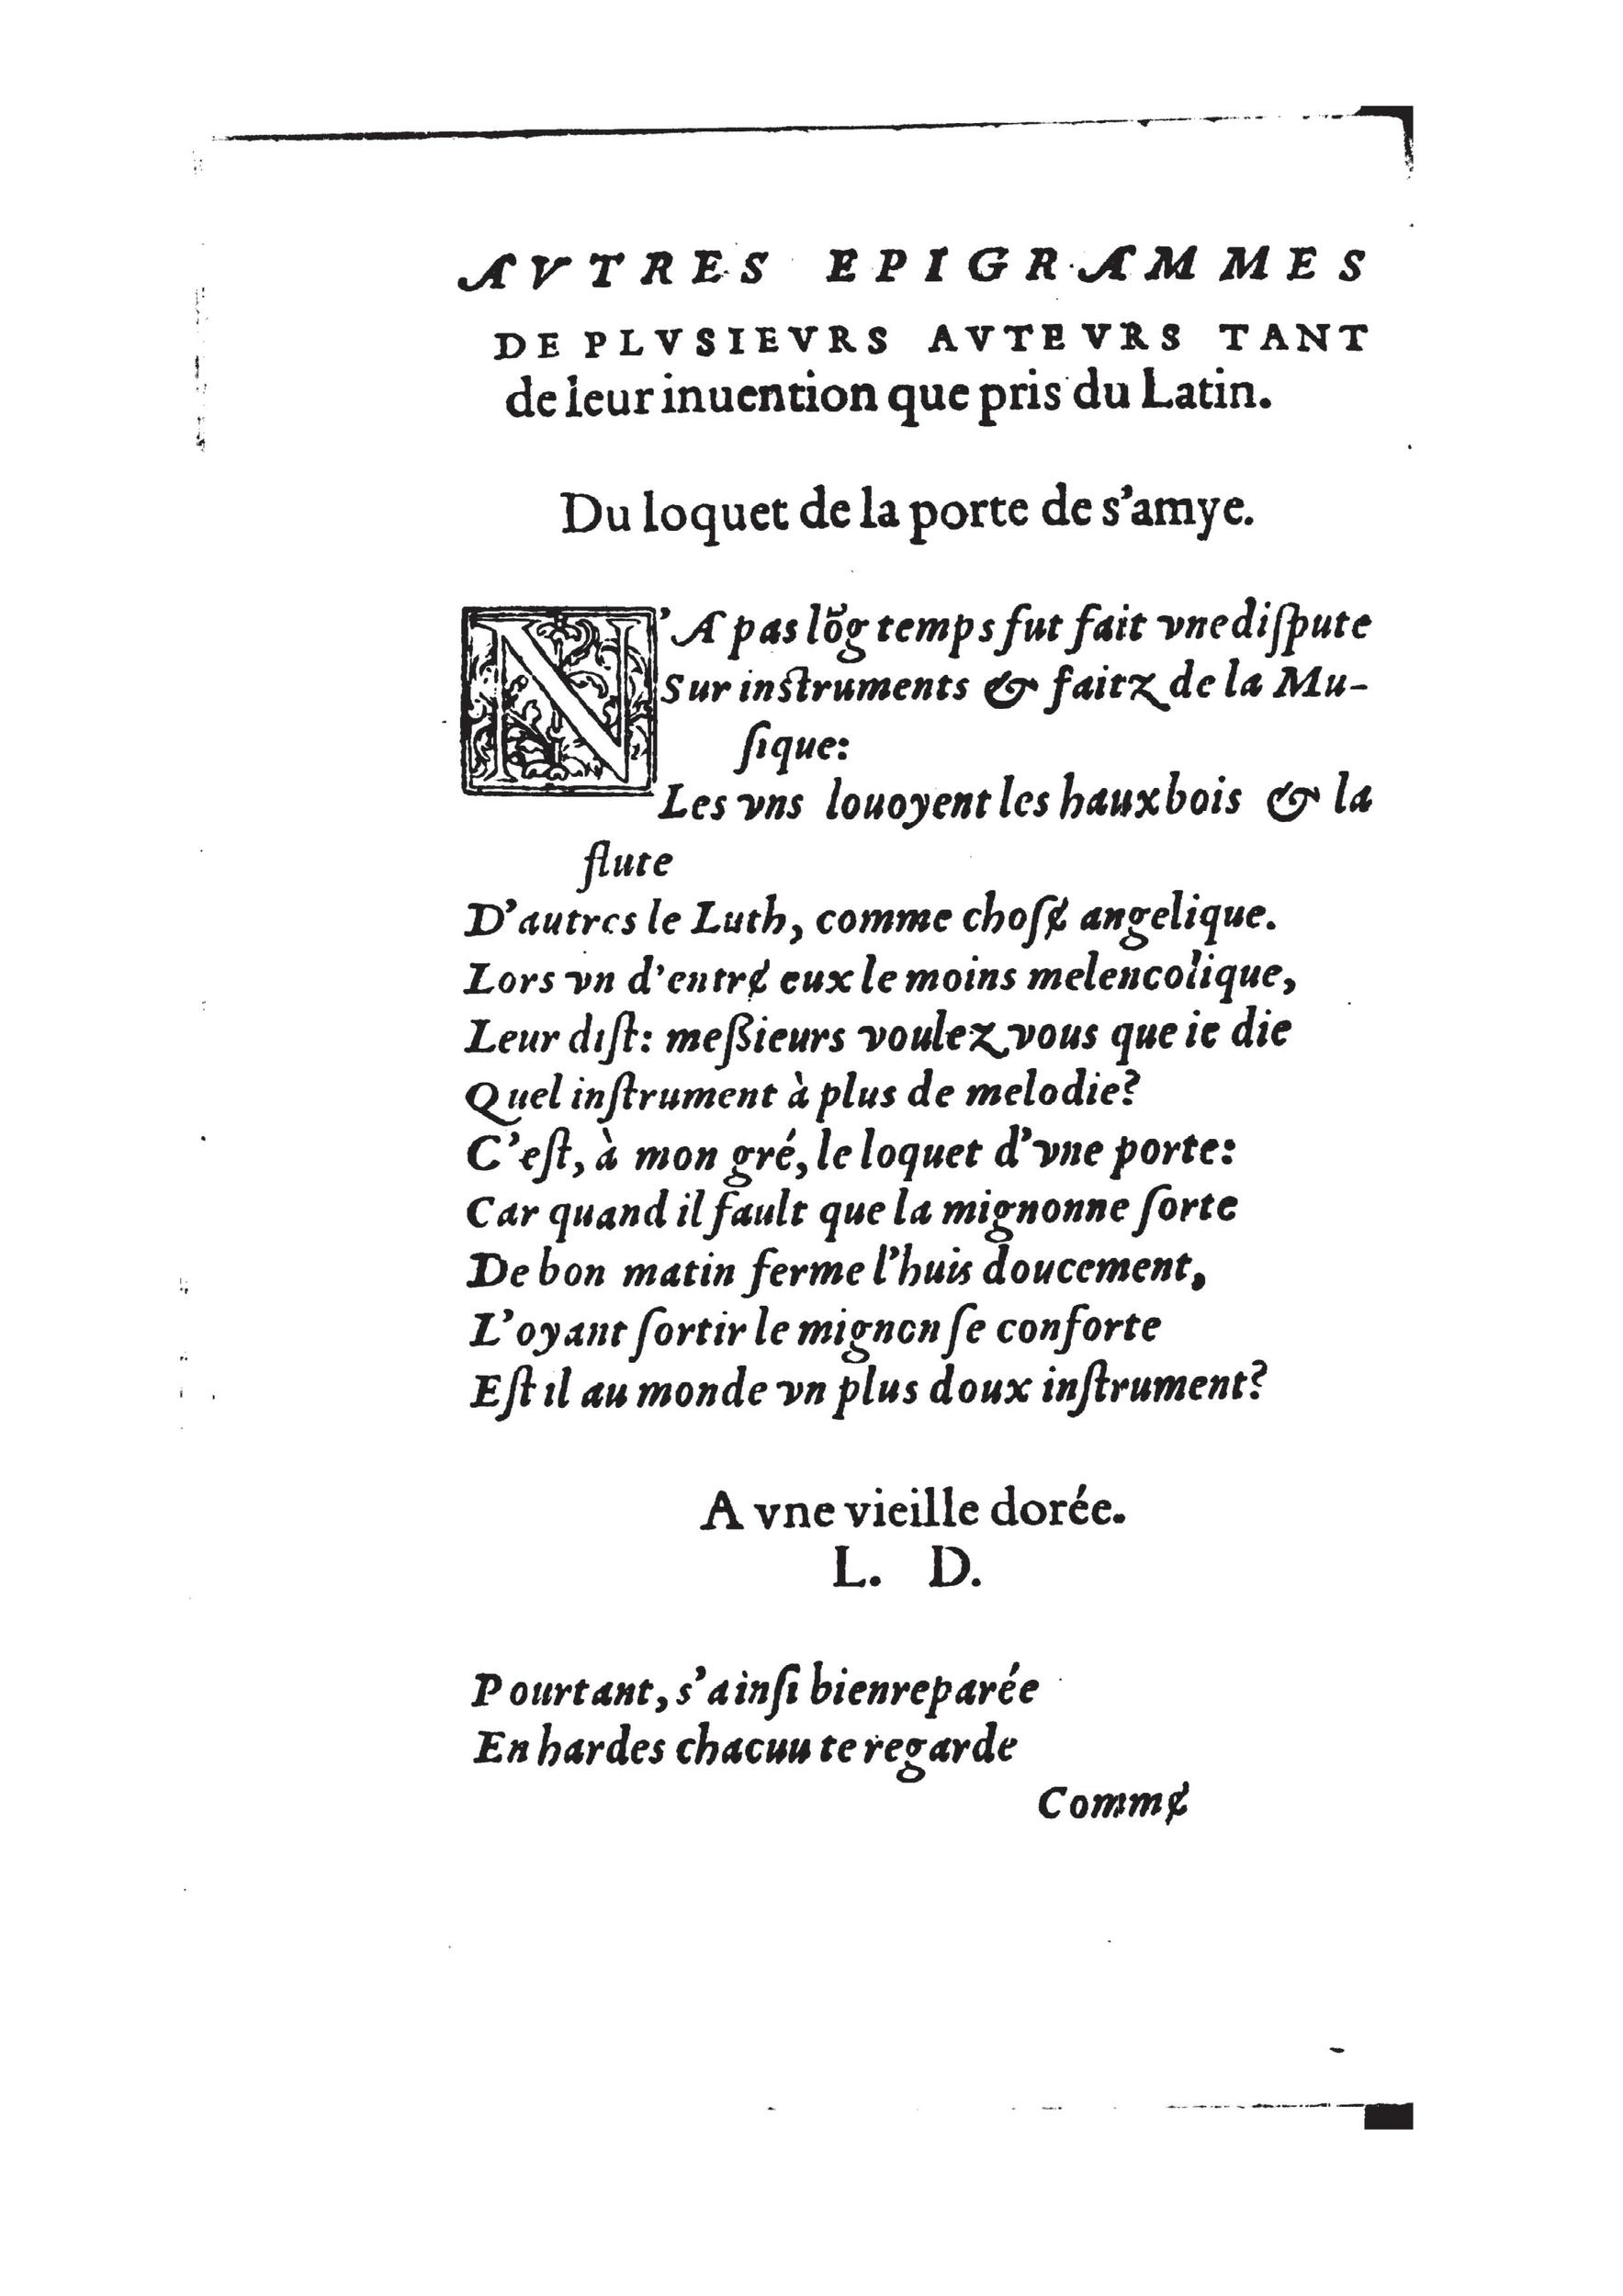 AVTRES EPIGRAMMES
DE PLVSIEVRS AVTEVRS TANT
de leur inuention que pris du Latin.
Du loquet de la porte de s'amye.
N'A pas lõg temps fut fait vne diſpute
Sur inſtruments & faitz de la Mu-
ſique:
Les vns louoyent les hauxbois & la
flute
D'autres le Luth, comme choſɇ angelique.
Lors vn d'entrɇ eux le moins melencolique,
Leur diſt: meßieurs voulez vous que ie die
Quel inſtrument à plus de melodie?
C'eſt, à mon gré, le loquet d'vne porte:
Car quand il fault que la mignonne ſorte
De bon matin ferme l'huis doucement,
L'oyant ſortir le mignon ſe conforte
Eſt il au monde vn plus doux inſtrument?
A vne vieille dorée.
L. D.
Pourtant, s'ainſi bien reparée
En hardes chacuu te regarde
Commɇ